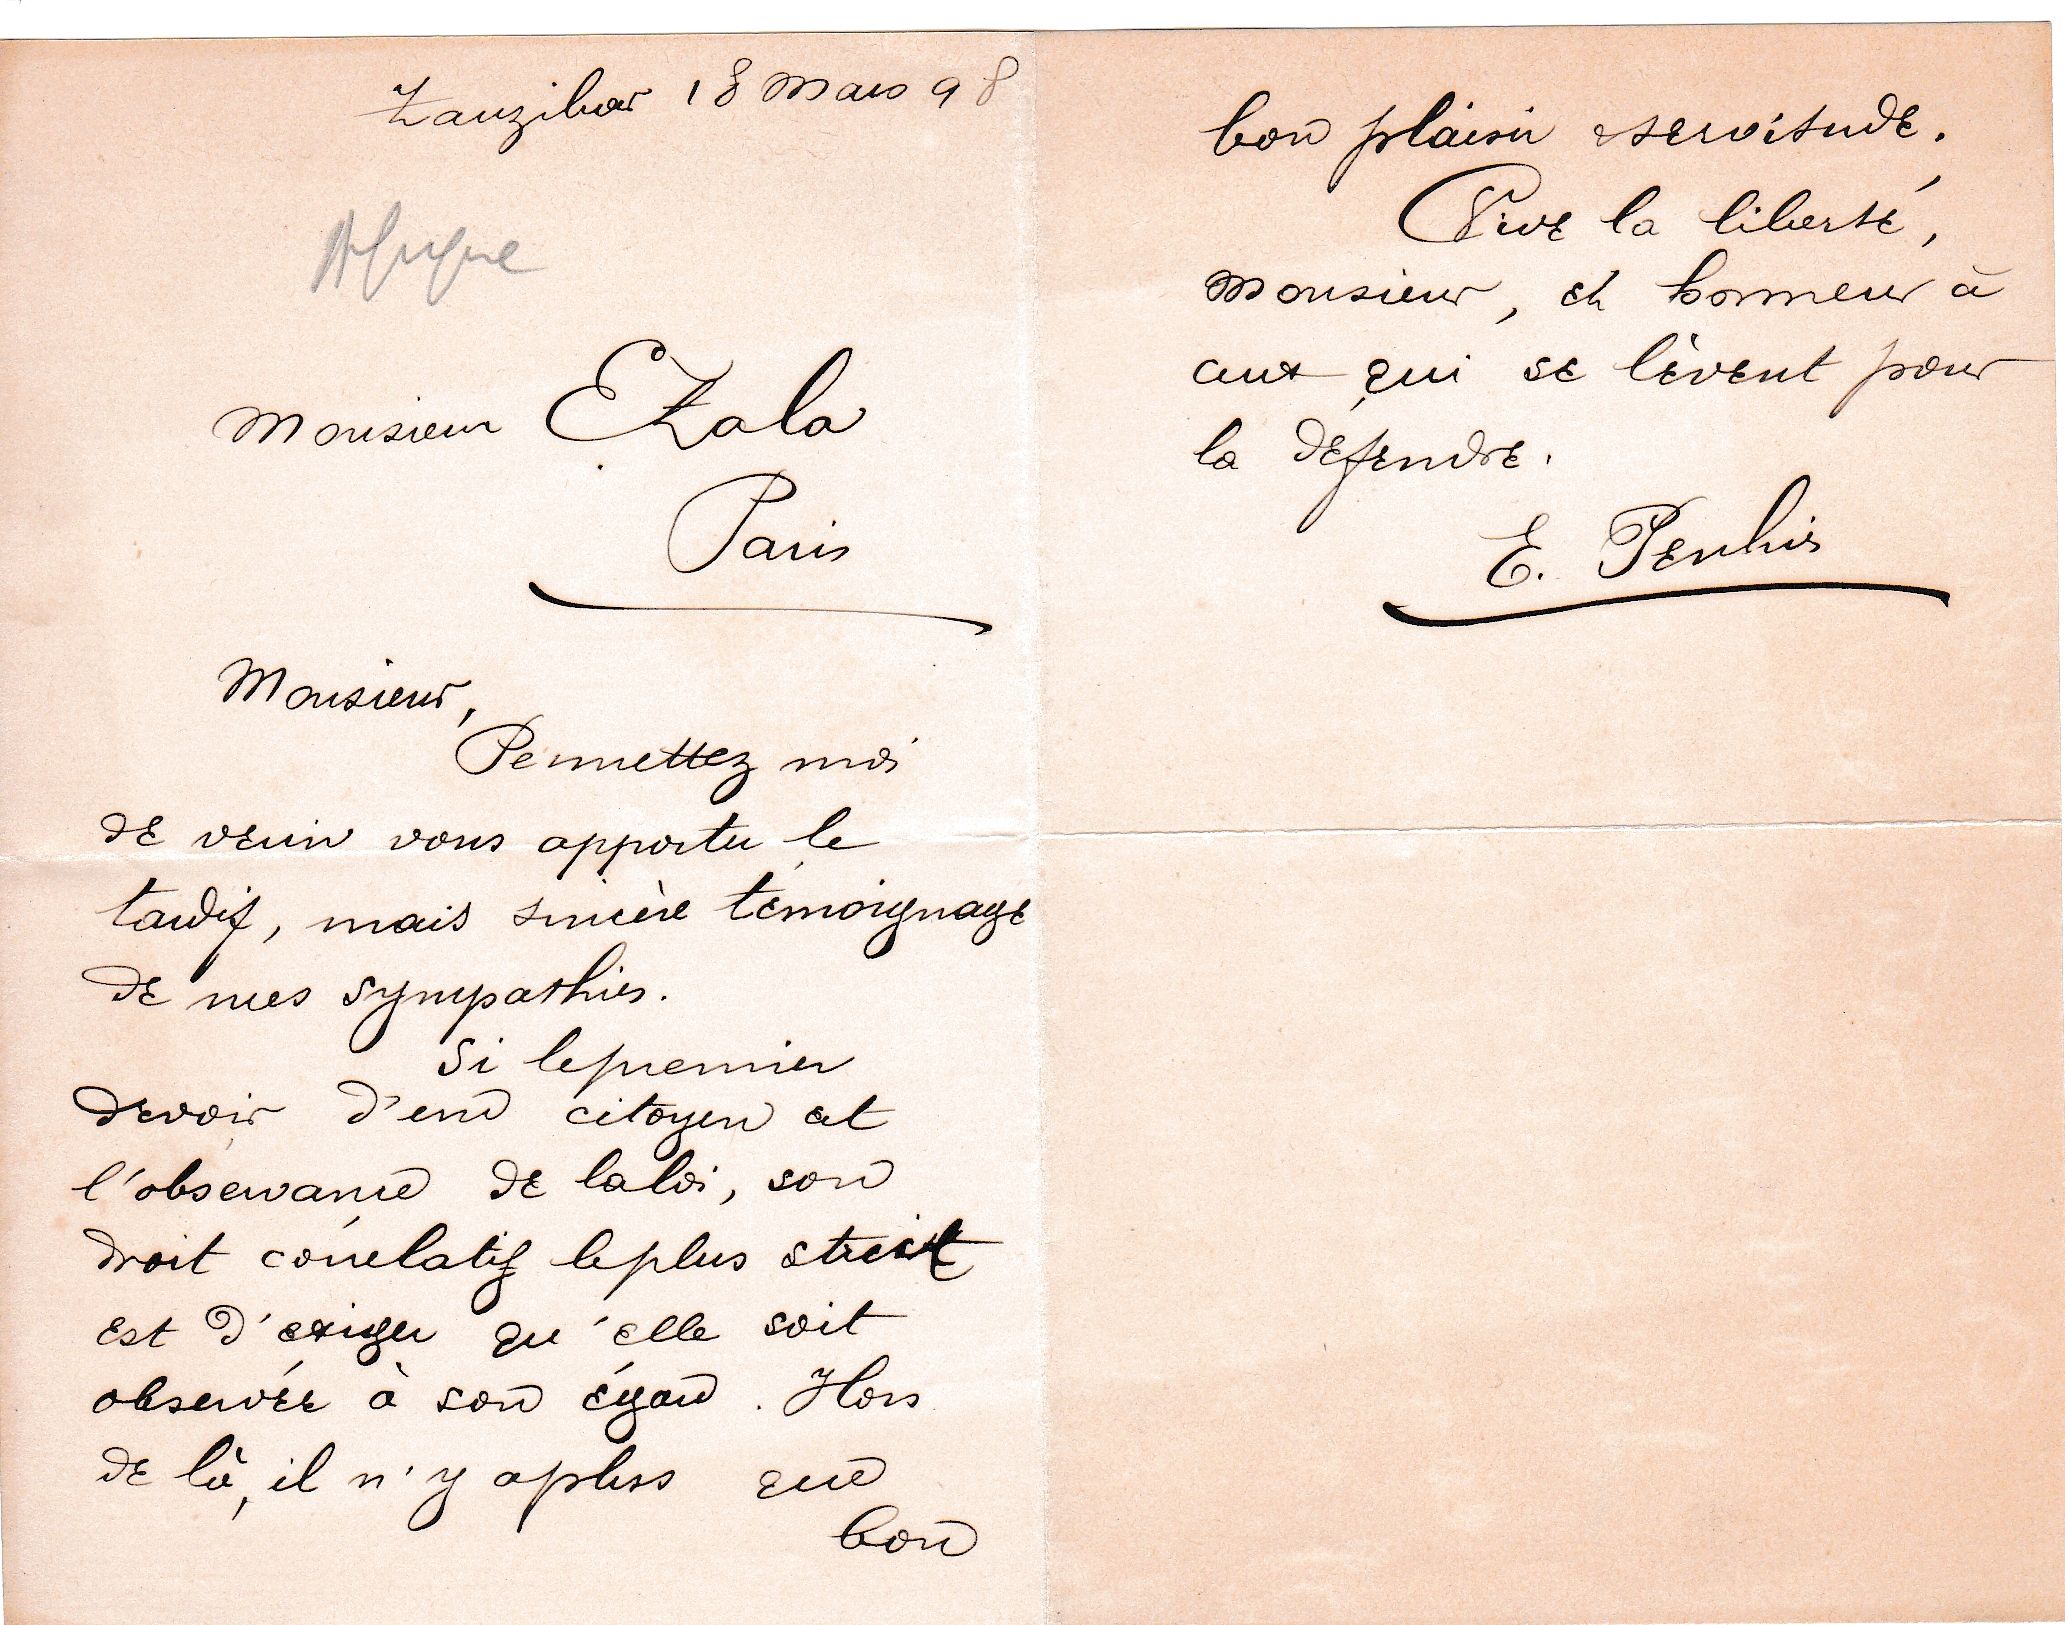 Zanzibar 18 Mars 98
Afrique
Monsieur E Zola
Paris
Monsieur,
Permettez moi
de venir vous apporter le
tardif, mais sincère témoignage
de mes sympathies.
Si le premier
devoir d'un citoyen est
l'observance de la loi, son
droit corrélatif le plus strict
est d'exiger qu'elle soit
observée à son égard. Hors
de là, il n'y a plus que
bon
bon plaisir et servitude.
Vive la liberté,
Monsieur, et honneur à
ceux qui se lèvent pour
la défendre.
E.